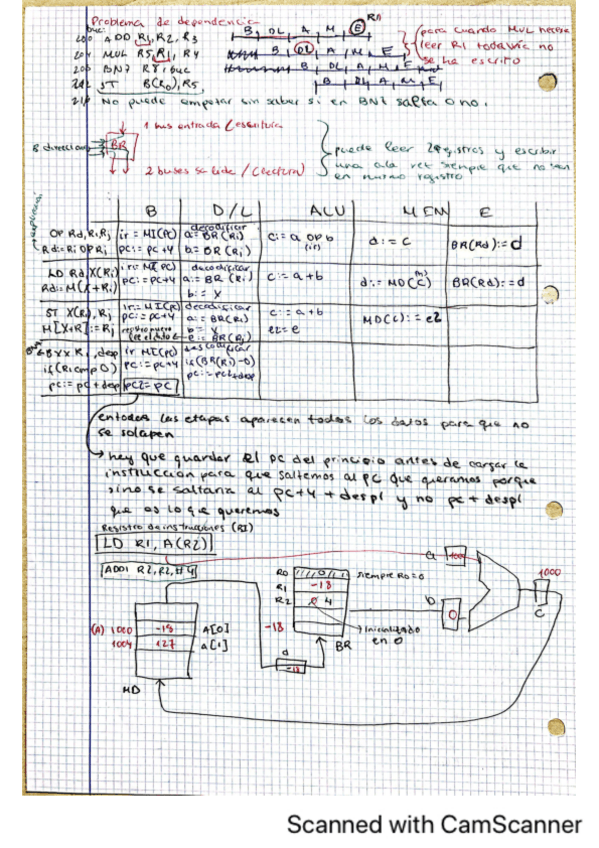 Problema de dependencia
200 ADD R1, R2, R3
204 MUL R5, R1, R4
208 BNZ R8, buc
212 ST B(R0), R5
216 No puede empezar sin saber si en BNZ salta o no.
B DL A M E
B DL A M E
B DL A M E
B DL A M E
para cuando MUL necesita
leer R1 todavía no
se ha escrito
1 bus entrada / escritura
BR
2 buses salida / (lectura)
puede leer 2 registros y escribir
una a la vez siempre que no sea
en mismo registro
B D/L ALU MEM E
OP Rd, Ri, Rj
Rd := Ri OP Rj
ir = MI(PC)
pc := pc+4
decodificar
a := BR(Ri)
b := BR(Rj)
c := a op b
(ir)
d := c
BR(Rd) := d
LD Rd, X(Ri)
Rd := M(X+Ri)
ir := MI(PC)
pc := pc+4
decodificar
a := BR(Ri)
b := X
c := a+b
d := MD(c)
BR(Rd) := d
ST X(Ri), Rj
M[X+R] := Rj
ir := MI(PC)
pc := pc+4
decodificar
a := BR(Ri)
b := X
e := BR(Rj)
c := a+b
e2 = e
MD(c) := e2
BXX Ri, desp
if (Ri comp 0)
pc := pc + desp
ir MI(PC)
pc := pc+4
pc2 = pc
descodificar
if (BR(Ri)-0)
pc := pc2+desp
en todas las etapas aparecen todos los datos para que no
se solapen
hay que guardar el pc del principio antes de cargar la
instrucción para que saltemos al pc que queramos porque
sino se saltaria al pc+4 + despl y no pc + despl
que es lo que queremos
Registro de instrucciones (RI)
LD R1, A(R2)
ADDI R2, R2, #4
(A) 1000 -18 A[0]
1004 127 a[1]
MD
R0 0 siempre R0=0
R1 -18
R2 0 4
Inicializado
en 0
BR
-18
d
-18
a 1000
b 0
1000
C
Scanned with CamScanner